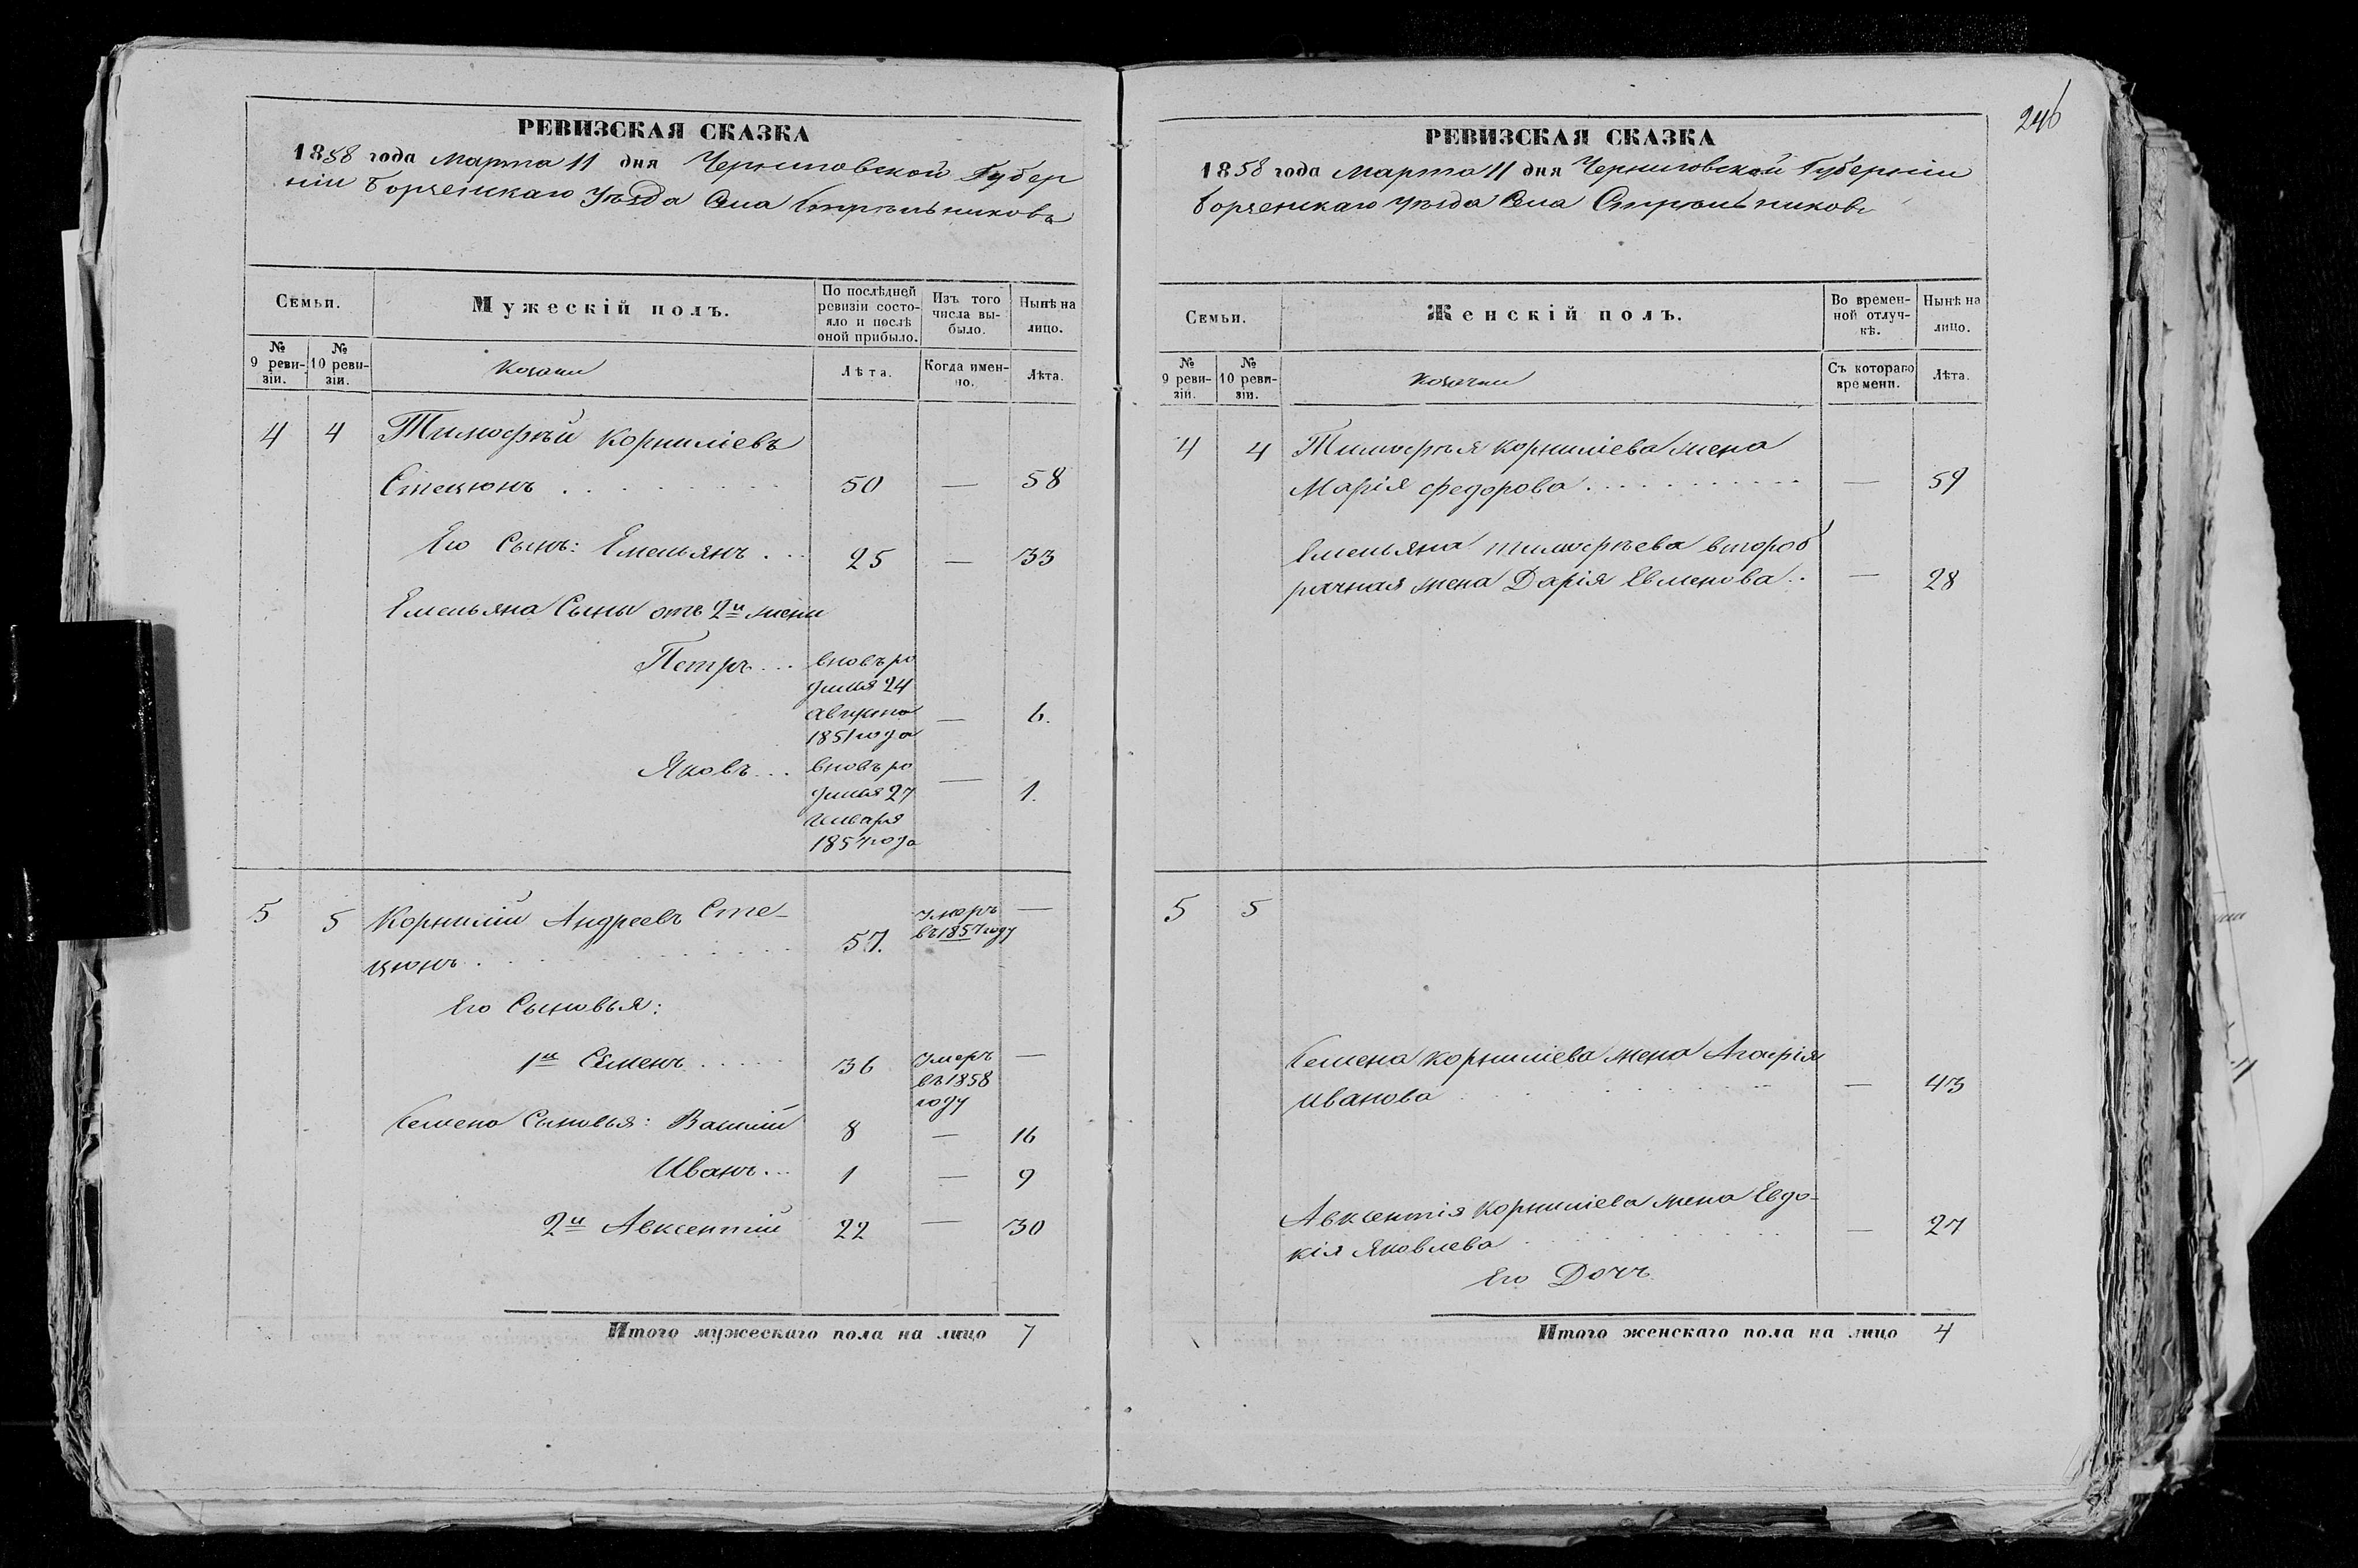 РЕВИЗСКАЯ СКАЗКА
1858 года Марта 11 дня Черниговской Губер
ніи Борзенскаго Уѣзда Села Стрѣльниковъ
Семьи.
Мужескій полъ.
По послѣдней ревизіи состояло и послѣ оной прибыло.
Изъ того числа выбыло.
Нынѣ на лицо.
№ 9 ревизіи.
№ 10 ревизіи.
Козаки
Лѣта.
Когда именно.
Лѣта.
4 4 Тимофѣй Корниліевъ
Стецюнъ . . . . . . . . 50 — 58
Его Сынъ: Емельянъ . . . 25 — 33
Емельяна Сыны отъ 2й жены
Петръ . . . вновь ро
дился 24
августа — 6.
1851 года
Яковъ . . . вновь ро
дился 27 — 1.
Января
1857 года
5 5 Корнилій Андреевъ Сте-
цюнъ . . . . . . . . 57. умеръ въ 1857 году —
Его Сыновья:
1й Семенъ . . . . . 36 Умеръ —
въ 1858
году
Семена Сыновья: Василій 8 — 16
Иванъ . . . 1 — 9
2й Авксентій 22 — 30
Итого мужескаго пола на лицо 7
246
РЕВИЗСКАЯ СКАЗКА
1858 года Марта 11 дня Черниговской Губерніи
Борзенскаго Уѣзда Села Стрѣльниковъ
Семьи.
Женскій полъ.
Во временной отлучкѣ.
Нынѣ на лицо.
№ 9 ревизіи.
№ 10 ревизіи.
Козачки
Съ котораго времени.
Лѣта.
4 4 Тимофѣя Корниліева жена
Марія Федорова . . . . . . . . . . . — 59
Емельяна Тимофѣева второб
рачная жена Дарія Евменова . . — 28
5 5
Семена Корниліева жена Агафія
Иванова . . . . . . . . — 43
Авксентія Корниліева жена Евдо-
кія Яковлева . . . . . . . . — 27
Его Дочь
Итого женскаго пола на лицо 4